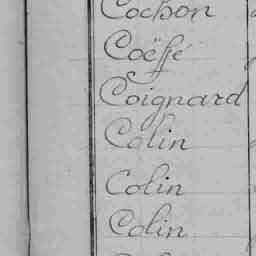 Cochon
Coëffé
Coignard
Colin
Colin
Colin